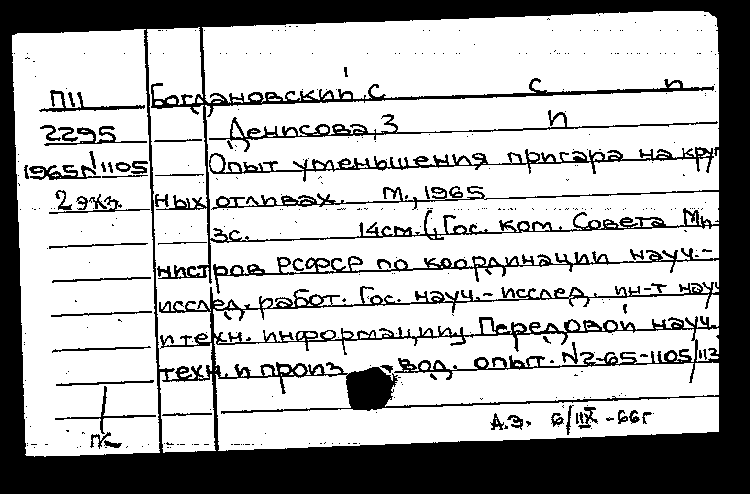 П11 Богдановский, С С П
2295 Денисова, З П
1965 N1105 Опыт уменьшения пригара на круп
2 экз. ных отливах. М., 1965
3с. 14см. (Гос. ком. Совета Ми-
нистров РСФСР по координации науч.-
исслед. работ. Гос. науч.-исслед. ин-т науч
и техн. информации. Передовой науч.
техн. и произ вод. опыт. N2-65-1105/113
А.Э. 6/IIX -66г
ГК